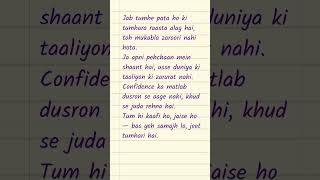 Jab tumhe pata ho ki
tumhara raasta alag hai,
toh mukabla zaroori nahi
hota.
Jo apni pehchaan mein
shaant hai, usse duniya ki
taaliyon ki zarurat nahi.
Confidence ka matlab
dusron se aage nahi, khud
se juda rehna hai.
Tum hi kaafi ho, jaise ho
— bas yeh samajh lo, jeet
tumhari hai.
shaant h
taaliyon
Confide
dusron
se juda